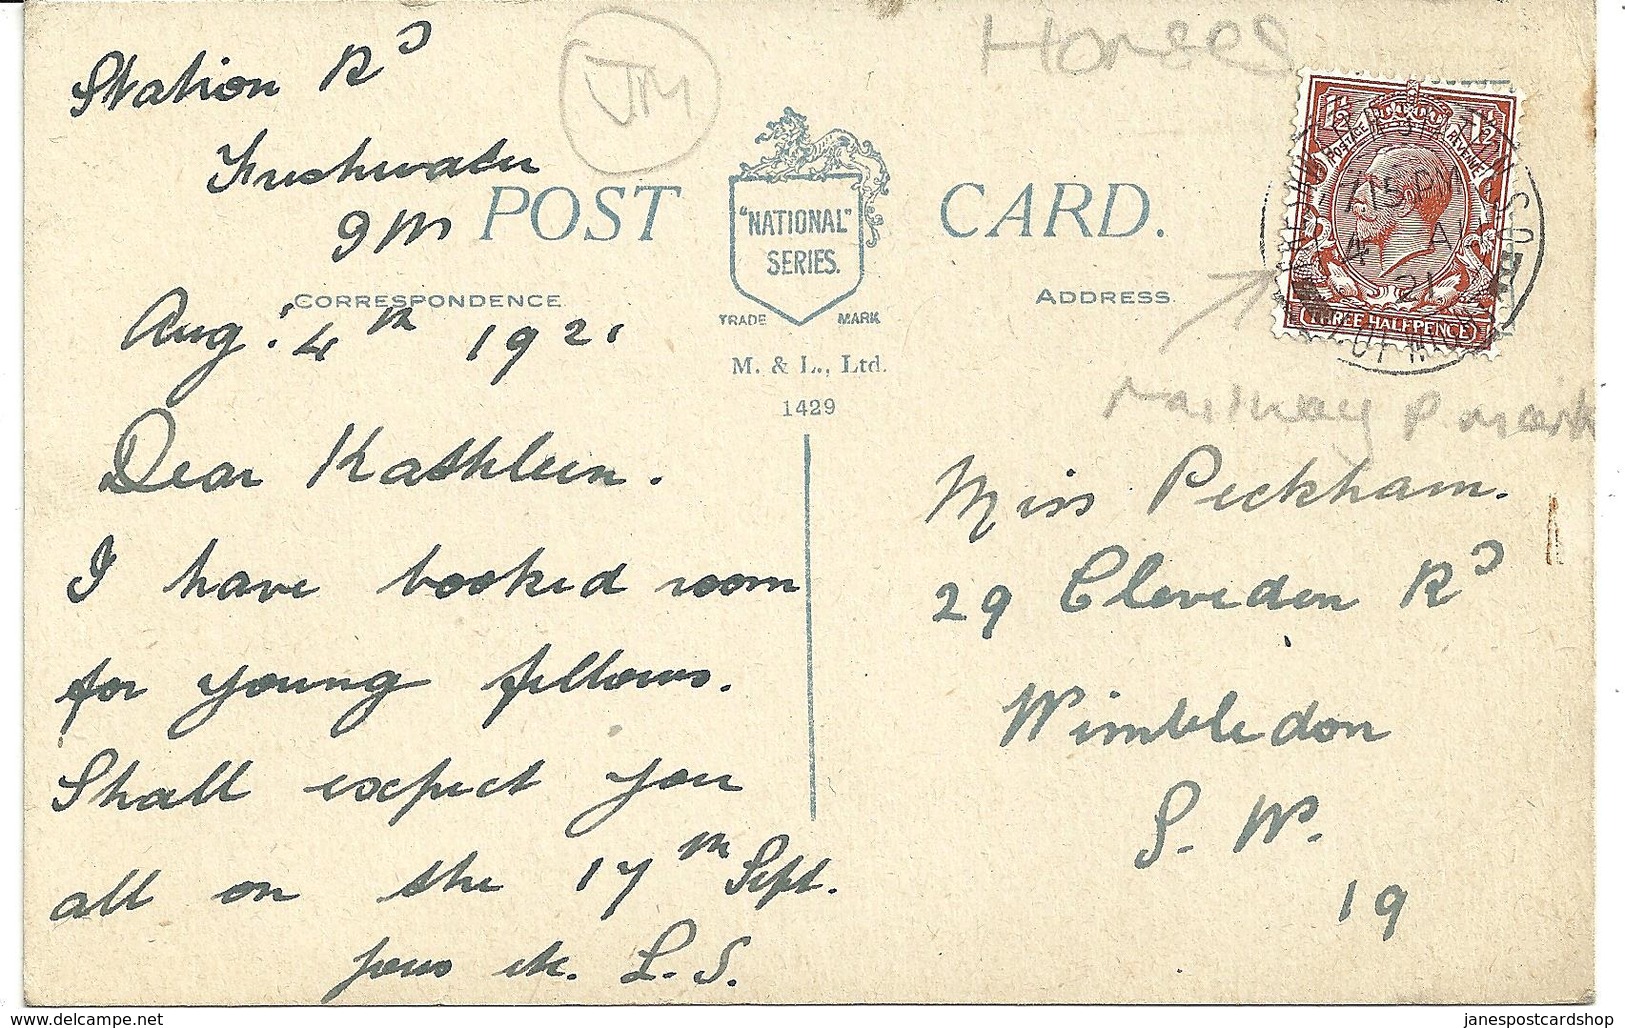 Station Rd
Freshwater
IM
Aug: 4th 1921
Dear Kathleen.
I have booked room
for young fellows.
Shall expect you
all on the 17th Sept.
yours etc. L.S.
JM
Horses
POST CARD.
"NATIONAL"
SERIES.
TRADE MARK
M. & L., Ltd.
1429
CORRESPONDENCE
ADDRESS.
POSTAGE REVENUE
1½ 1½
THREE HALFPENCE
7 15 PM
4 A
21
railway P. mark
Miss Peckham.
29 Clevedon Rd
Wimbledon
S. W.
19
www.delcampe.net
janespostcardshop